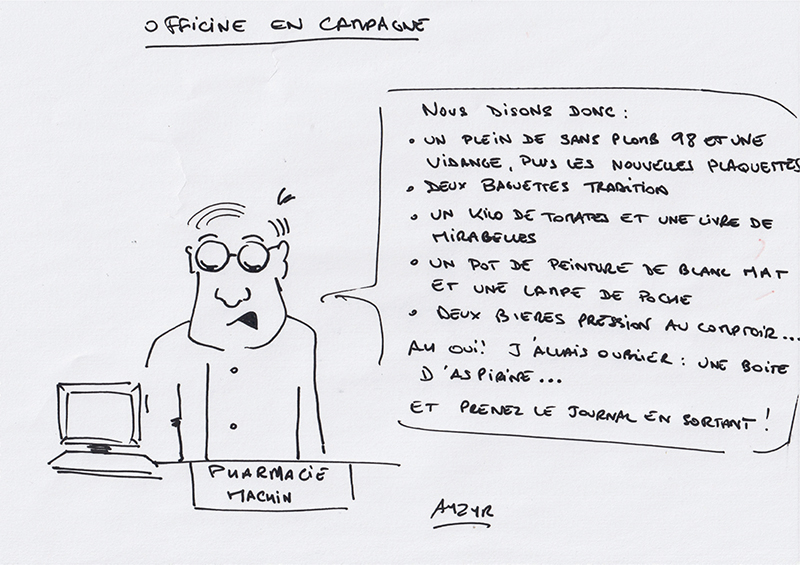 OFFICINE EN CAMPAGNE
NOUS DISONS DONC :
• UN PLEIN DE SANS PLOMB 98 ET UNE
VIDANGE, PLUS LES NOUVELLES PLAQUETTES
• DEUX BAGUETTES TRADITION
• UN KILO DE TOMATES ET UNE LIVRE DE
MIRABELLES
• UN POT DE PEINTURE DE BLANC MAT
ET UNE LAMPE DE POCHE
• DEUX BIERES PRESSION AU COMPTOIR...
AH OUI! J'ALLAIS OUBLIER : UNE BOITE
D'ASPIRINE...
ET PRENEZ LE JOURNAL EN SORTANT !
PHARMACIE
MACHIN
AMZYR